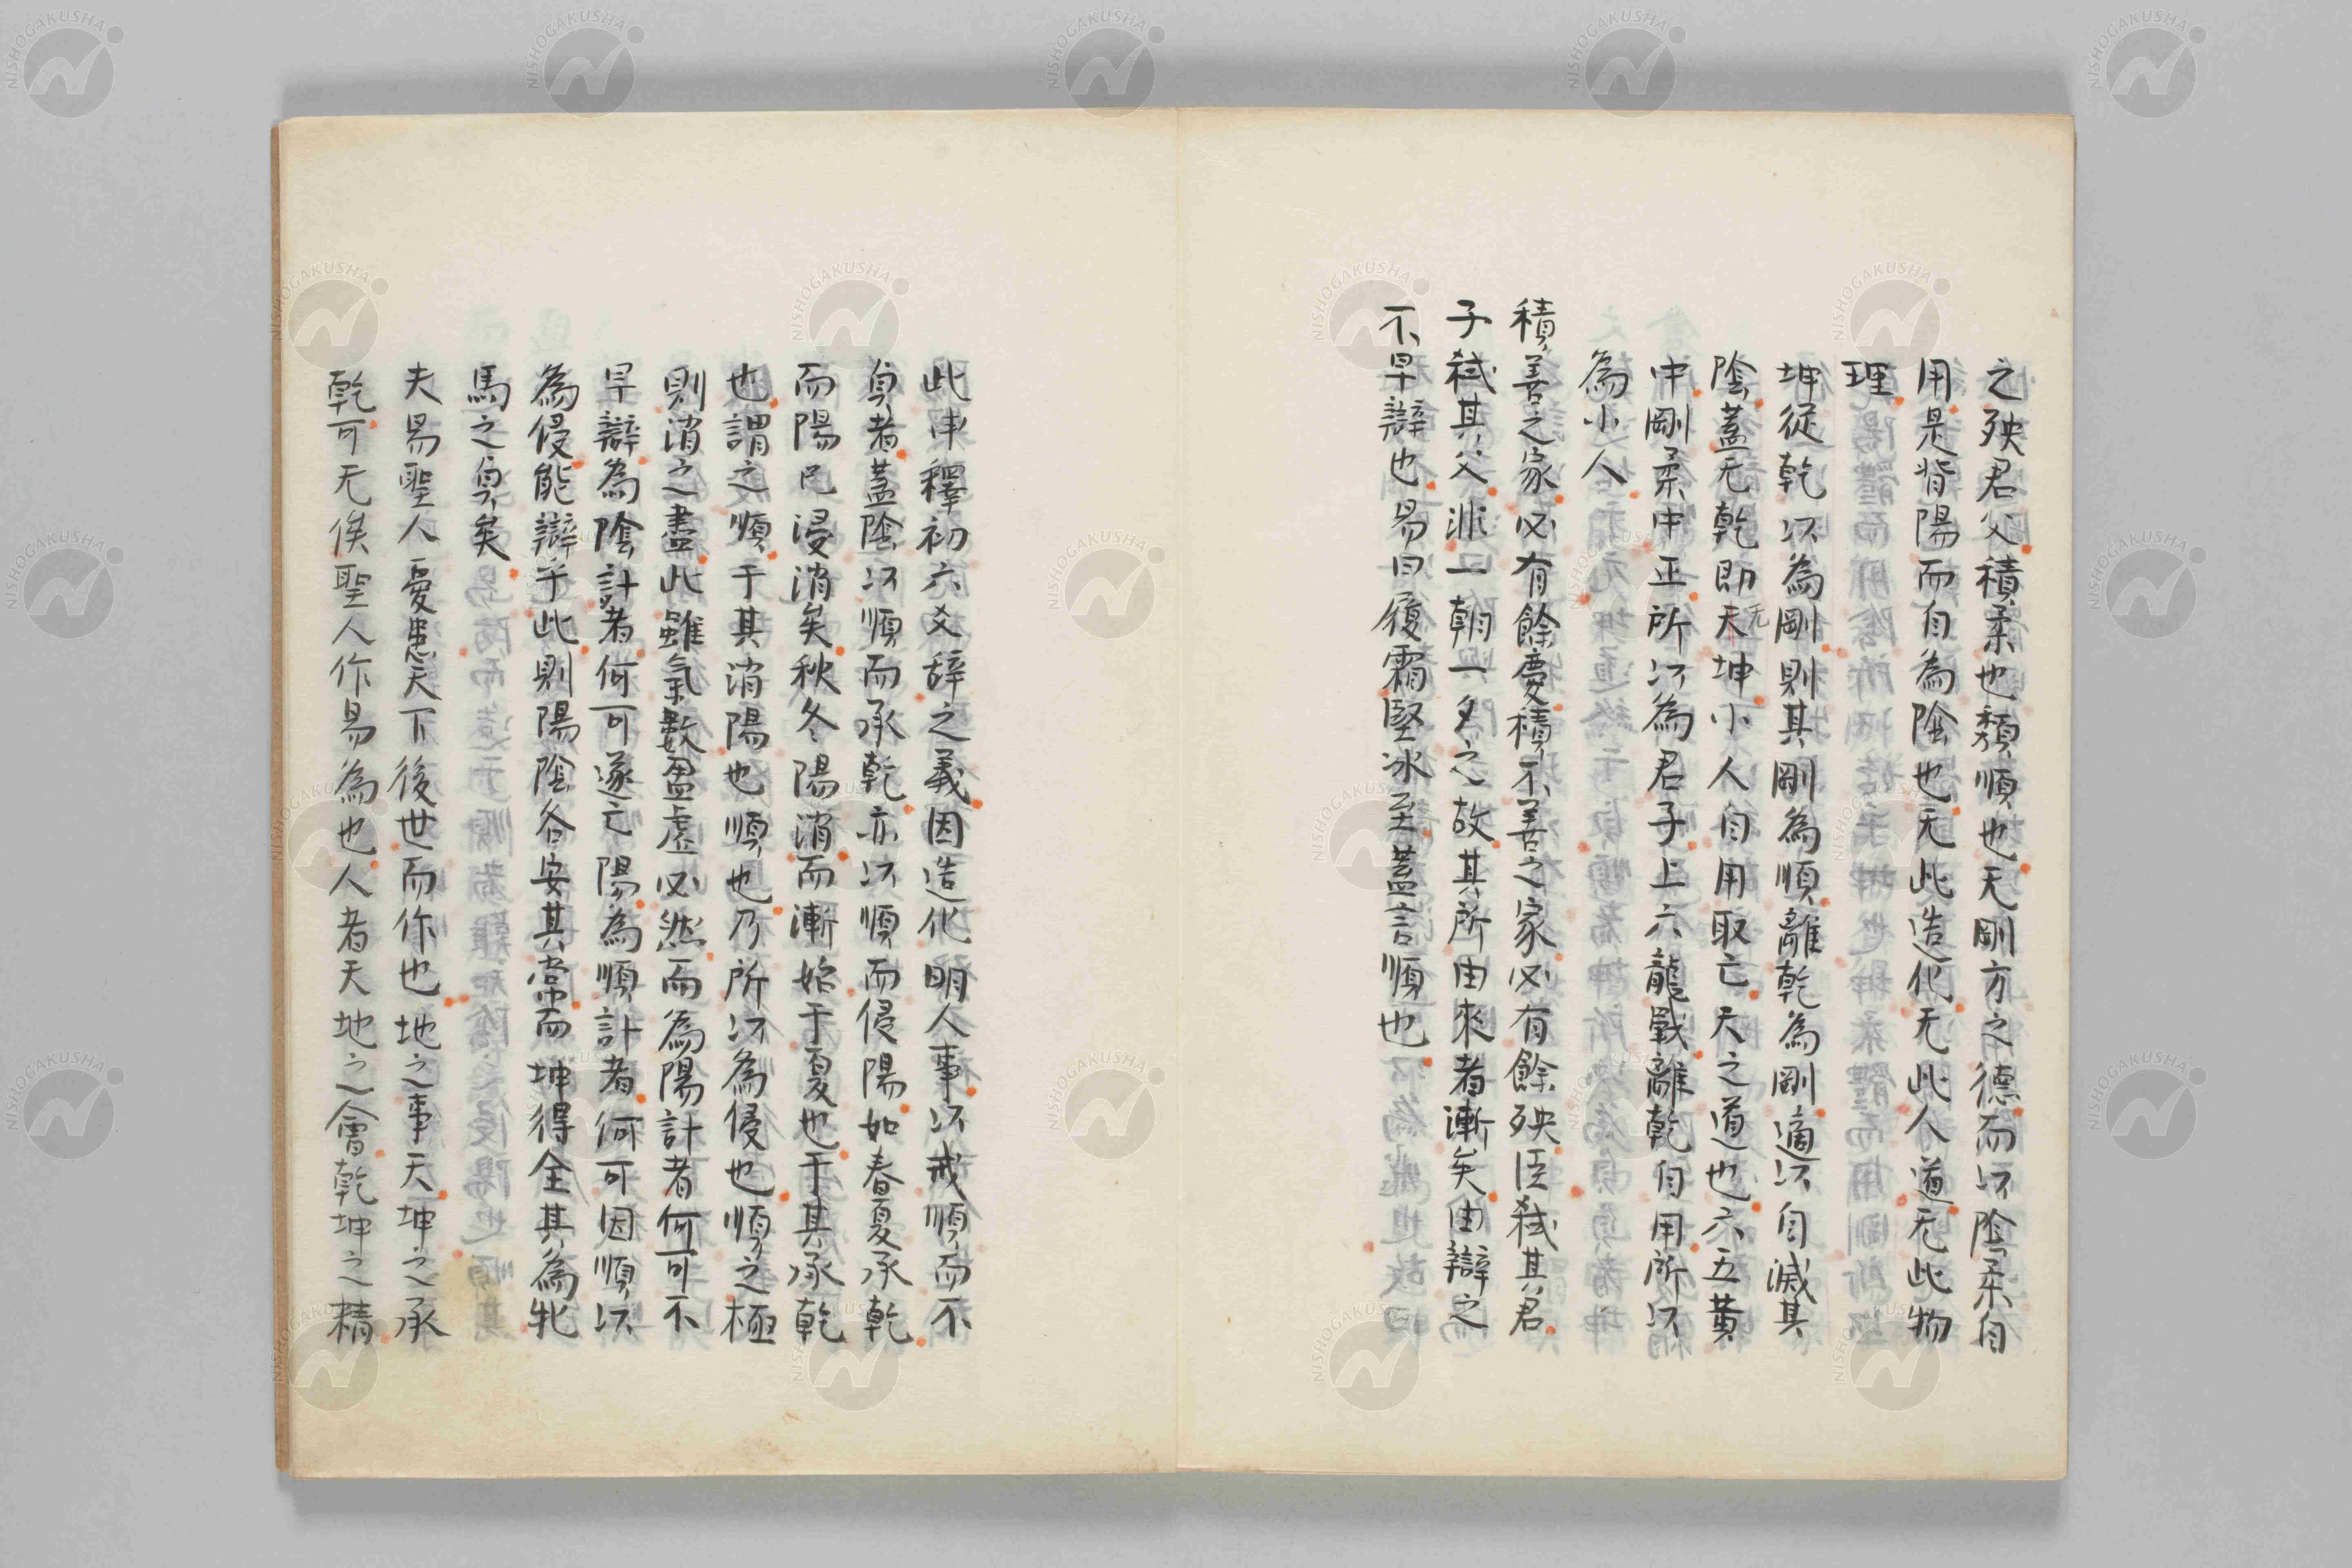 之殃君父積柔也頽順也无剛方之德而以陰柔自
用是背陽而自為陰也无此造化无此人道无此物
理
坤從乾以為剛則其剛為順離乾為剛適以自滅其
陰蓋无乾即天坤小人自用取亡天之道也六五黄
无
中剛柔中正所以為君子上六龍戰離乾自用所以
為小人
積善之家必有餘慶積不善之家必有餘殃臣弑其君
子弑其父非一朝一夕之故其所由來者漸矣由辯之
不早辯也易曰履霜堅冰至蓋言順也
此申釋初六爻辞之義因造化明人事以戒順而不
貞者蓋陰以順而承乾亦以順而侵陽如春夏承乾
而陽已浸消矣秋冬陽消而漸始于夏也于其承乾
也謂之順于其消陽也順也乃所以為侵也順之極
則消之盡此雖氣數盈虚必然而為陽計者何可不
早辯為陰計者何可遂亡陽為順計者何可因順以
為侵能辯乎此則陽陰各安其常而坤得全其為牝
馬之貞矣
夫易聖人憂患天下後世而作也地之事天坤之承
乾可无俟聖人作易為也人者天地之會乾坤之精
NISHOGAKUSHA